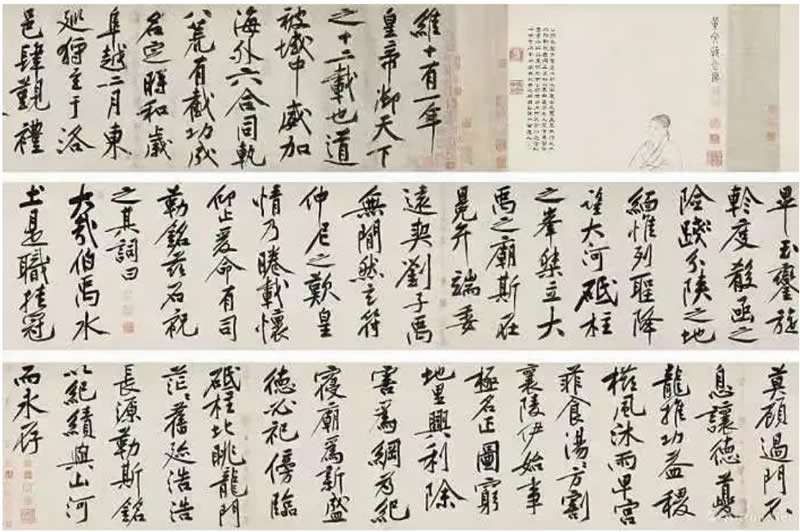 維十有一年
皇帝御天下
之十二載也道
被域中威加
海外六合同軌
八荒有截功成
名定時和歲
阜越二月東
巡狩至于洛
邑肆覲禮
畢玉鑾旋
軫度殽函之
險踐分陝之地
緬惟列聖降
望大河砥柱
之峯桀立大
禹之廟斯在
冕弁端委
遠契劉子禹
無閒然玄符
仲尼之歎皇
情乃睠載懷
仰止爰命有司
勒銘茲石祝
之其詞曰
大哉伯禹水
土是職挂冠
莫顧過門不
息讓德夔
龍推功益稷
櫛風沐雨卑宮
菲食湯〻方割
襄陵伊始事
極名正圖窮
地里興利除
害為綱為紀
寢廟為新盛
德必祀傍臨
砥柱北眺龍門
茫〻舊迹浩浩
長源勒斯銘
以紀績與山河
而永存